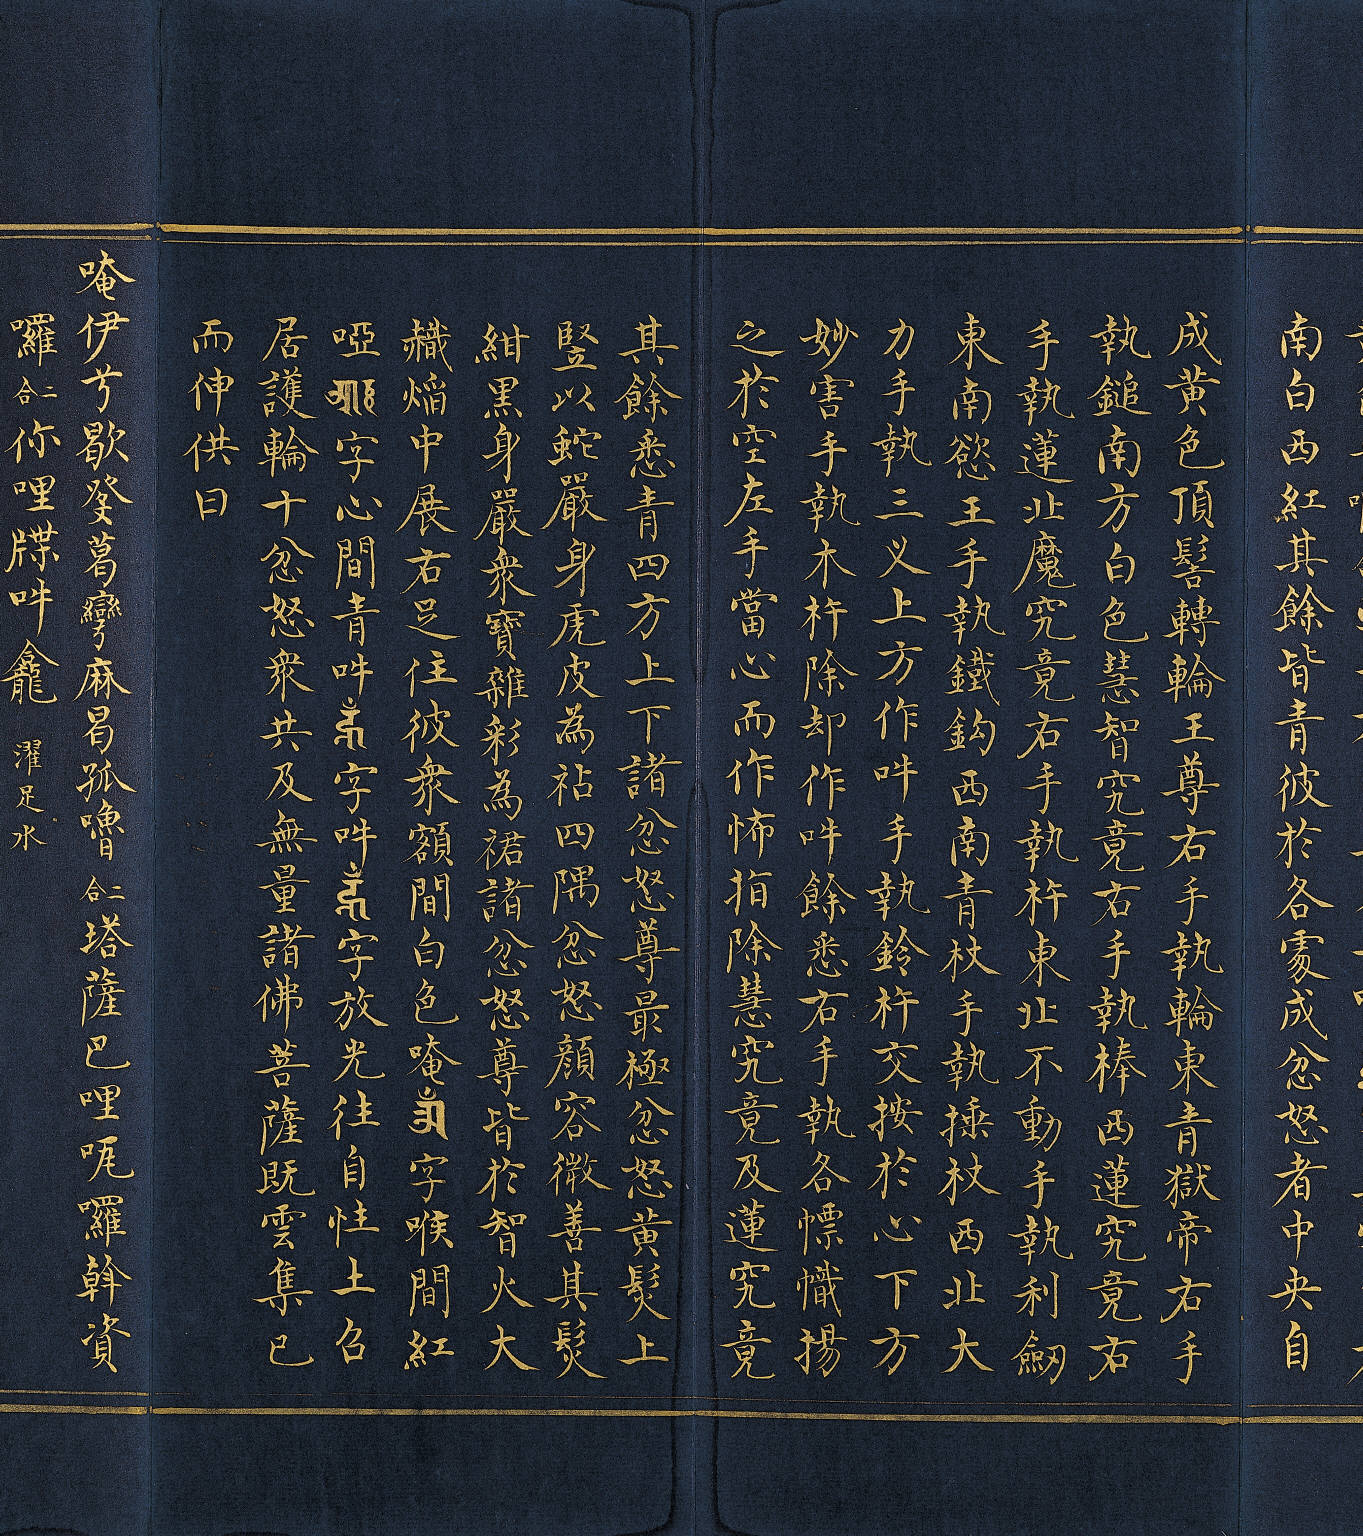 南白西紅其餘皆青彼於各處成忿怒者中央自
成黃色頂髻轉輪王尊右手執輪東青獄帝右手
執鎚南方白色慧智究竟右手執棒西蓮究竟右
手執蓮北魔究竟右手執杵東北不動手執利劒
東南慾王手執鐵鈎西南青杖手執捶杖西北大
力手執三义上方作吽手執鈴杵交按於心下方
妙害手執木杵除却作吽餘悉右手執各幖幟揚
之於空左手當心而作怖指除慧究竟及蓮究竟
其餘悉青四方上下諸忿怒尊最極忿怒黃髮上
竪以蛇嚴身虎皮為祫四隅忿怒顏容微善其髮
紺黑身嚴衆寶雜彩為裙諸忿怒尊皆於智火大
熾熖中展右足住彼衆額間白色唵ॐ字喉間紅
啞आः字心間青吽हूं字吽हूं字放光往自性土召
居護輪十忿怒衆共及無量諸佛菩薩既雲集已
而伸供曰
唵伊兮歇癹葛彎麻曷孤嚕二合塔薩巴哩呢囉斡資
囉二合你哩牒吽龕 濯足水